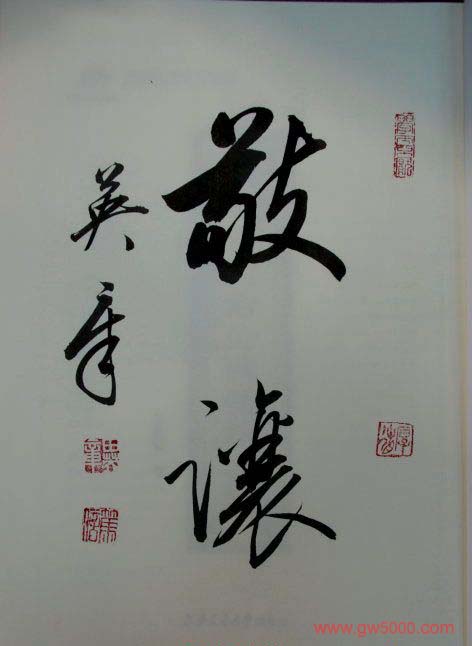 敬讓
英章
www.gw5000.com